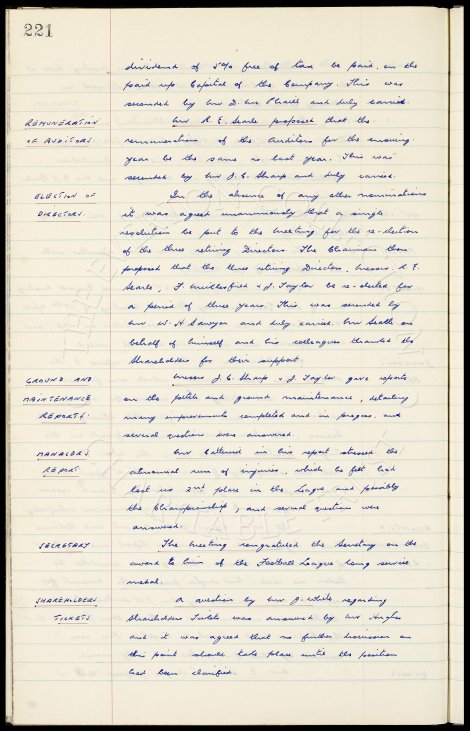 221
dividend of 5% free of tax be paid on the
paid up Capital of the Company. This was
seconded by Mr D. and duly carried.
REMUNERATION OF AUDITORS.
Mr R. E. Searle proposed that the
remuneration of the Auditors for the ensuing
year be the same as last year. This was
seconded by Mr J. C. Sharp and duly carried.
ELECTION OF DIRECTORS.
In the absence of any other nominations
it was agreed unanimously that a single
resolution be put to the meeting for the re-election
of the three retiring Directors. The Chairman then
proposed that the three retiring Directors, Messrs. R. E.
Searle, F. & J. Taylor be re-elected for
a period of three years. This was seconded by
Mr W. H. Sawyer and duly carried. Mr on
behalf of himself and his colleagues thanked the
Shareholders for their support.
GROUND AND MAINTENANCE REPORTS.
Messrs J. C. Sharp & J. Taylor gave reports
on the pitch and ground maintenance, detailing
many improvements completed and in progress and
several questions were answered.
MANAGERS REPORT
Mr in his report stressed the
abnormal run of injuries, which he felt had
lost us 2nd place in the League and possibly
the Championship, and several questions were
answered.
SECRETARY
The meeting congratulated the Secretary on the
award to him of the Football League long service
medal.
SHAREHOLDERS TICKETS
A question by Mr J. White regarding
Shareholders Tickets was answered by Mr Hughes
and it was agreed that no further discussion on
this point should take place until the position
had been clarified.